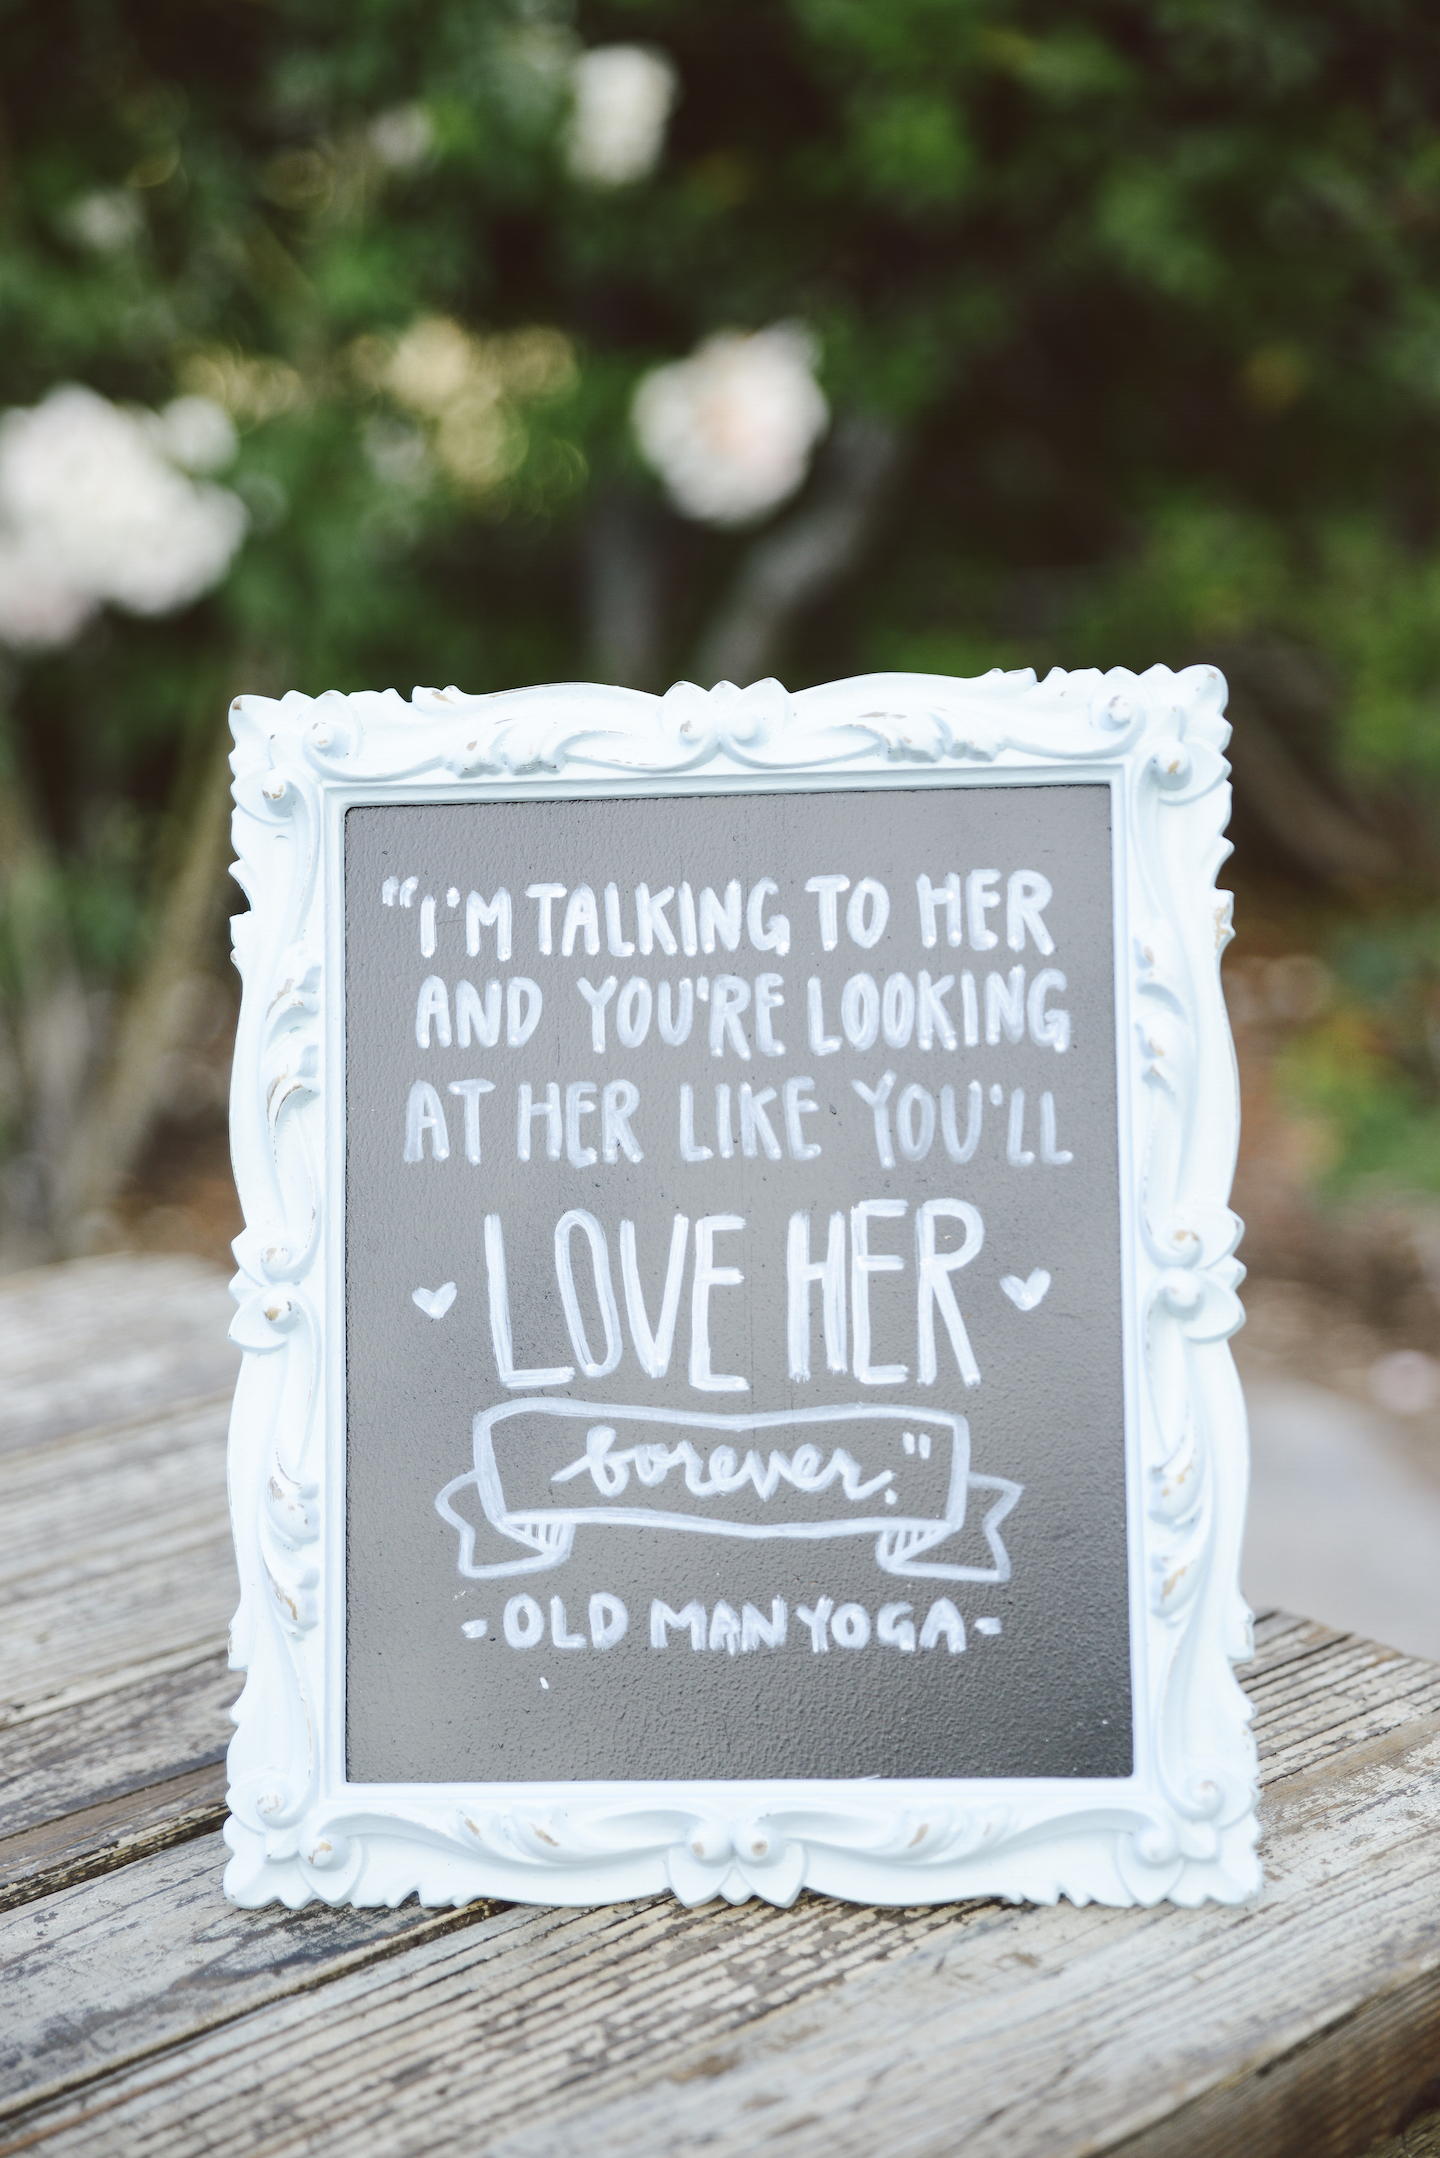 "I'M TALKING TO HER
AND YOU'RE LOOKING
AT HER LIKE YOU'LL
LOVE HER
forever."
-OLD MAN YOGA-